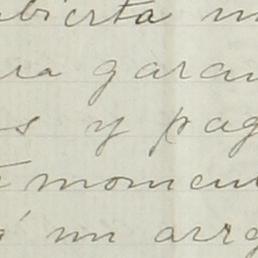 bierta m
ra garan
s y pag
momen
un arre